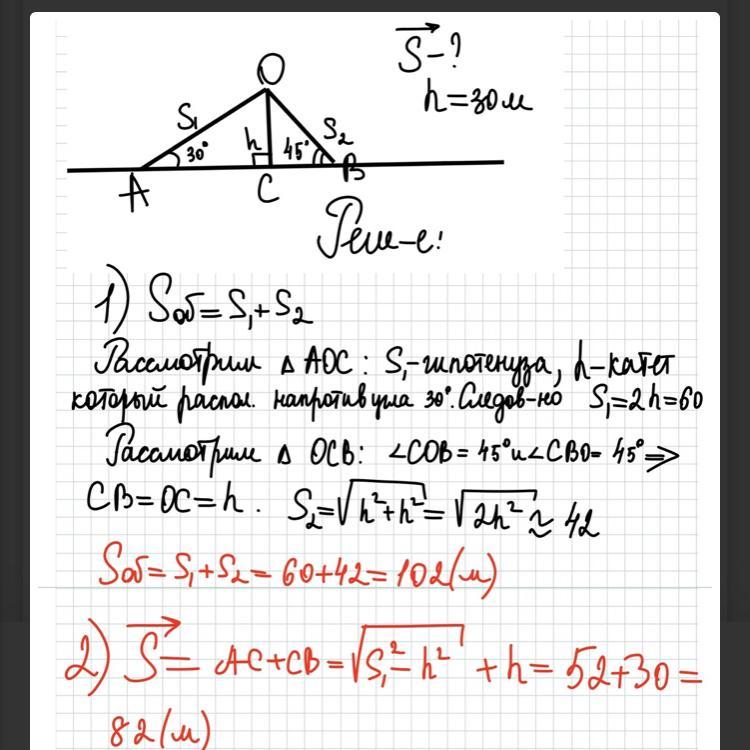 O
S⃗ - ?
h = 30 м
S₁
S₂
h
30°
45°
A
C
B
Реш-е:
1) Sоб = S₁ + S₂
Рассмотрим Δ AOC : S₁ - гипотенуза, h - катет
который распол. напротив угла 30°. Следов-но S₁ = 2h = 60
Рассмотрим Δ OCB : ∠COB = 45° и ∠CBO = 45° ⇒
CB = OC = h . S₂ = √(h² + h²) = √(2h²) ≈ 42
Sоб = S₁ + S₂ = 60 + 42 = 102 (м)
2) S⃗ = AC + CB = √(S₁² - h²) + h = 52 + 30 =
82 (м)